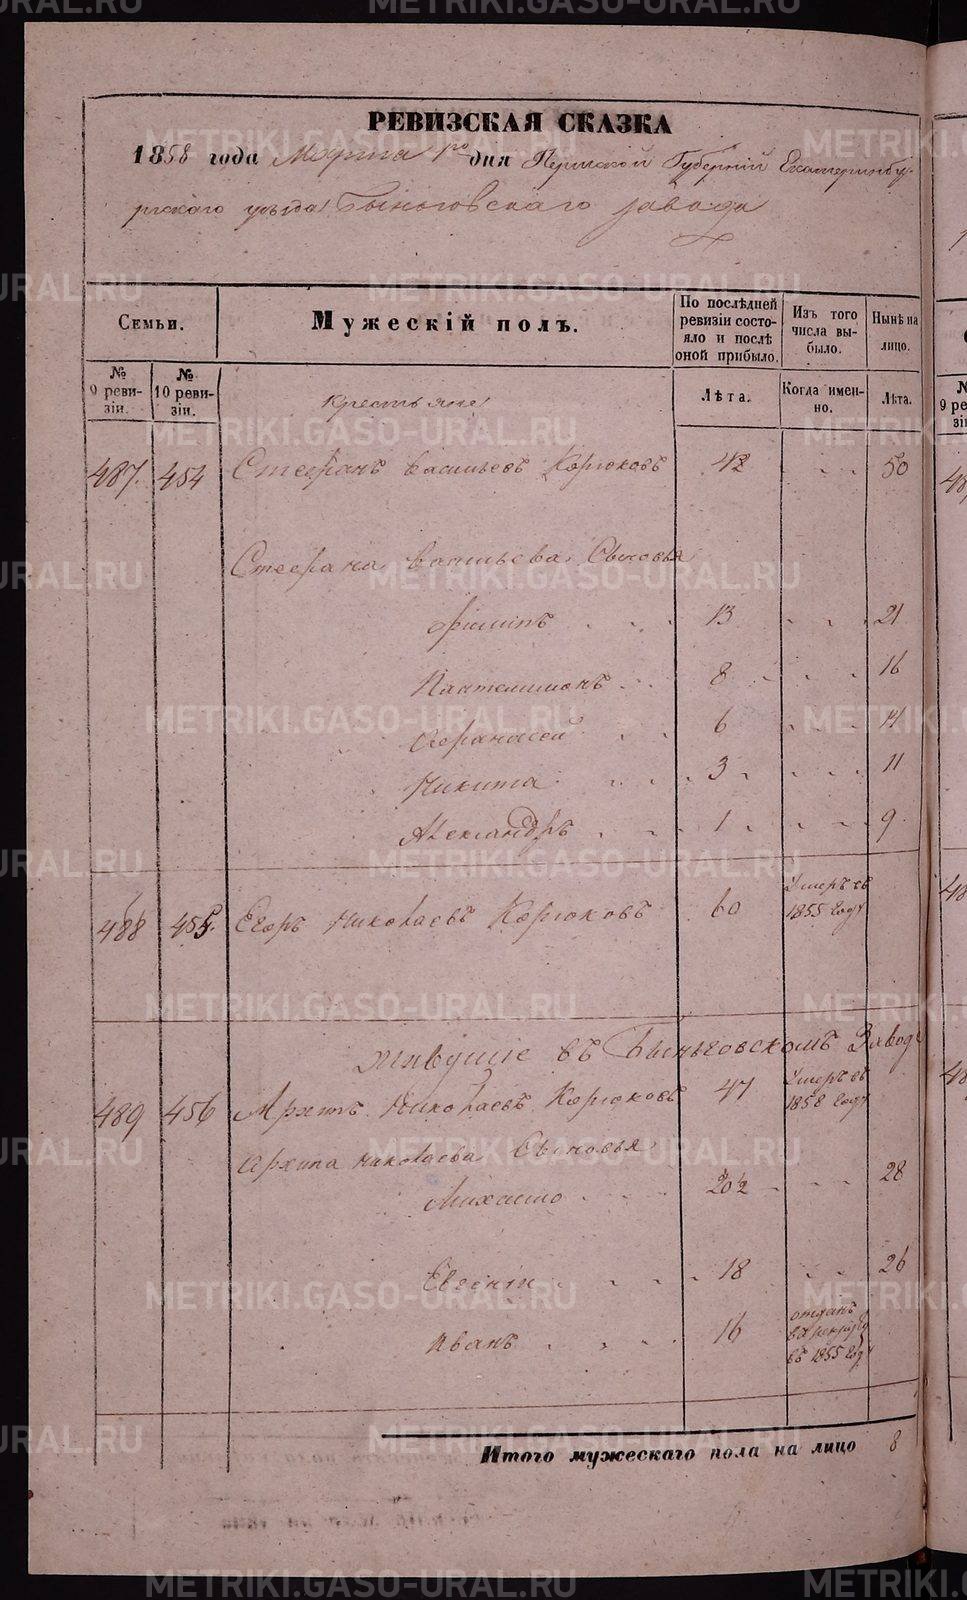 РЕВИЗСКАЯ СКАЗКА
1858 года Марта 1го дня Пермской Губернiи Екатеринбу-
ргскаго уѣзда Быньговскаго завода
Семьи.
Мужескiй полъ.
По послѣдней ревизiи состояло и послѣ оной прибыло.
Изъ того числа выбыло.
Нынѣ на лицо.
№ 9 ревизiи.
№ 10 ревизiи.
Лѣта.
Когда именно.
Лѣта.
Крестьяне
487. 454 Стефанъ Васильевъ Корюковъ 42 50
Стефана Васильева Сыновья
Филипъ 13 21
Пантелимонъ 8 16
Афанасей 6 14
Никита 3 11
Александръ 1 9
488 455. Егоръ Николаевъ Корюковъ 60 Умеръ въ 1855 году
живущiе въ Быньговскомъ Заводѣ
489 456 Архипъ Николаевъ Корюковъ 47 Умеръ въ 1858 году
Архипа Николаева Сыновья
Михайло 20½ 28
Евгенiй 18 26
Иванъ 16 отданъ въ рекруты въ 1855 году
Итого мужескаго пола на лицо 8
METRIKI.GASO-URAL.RU